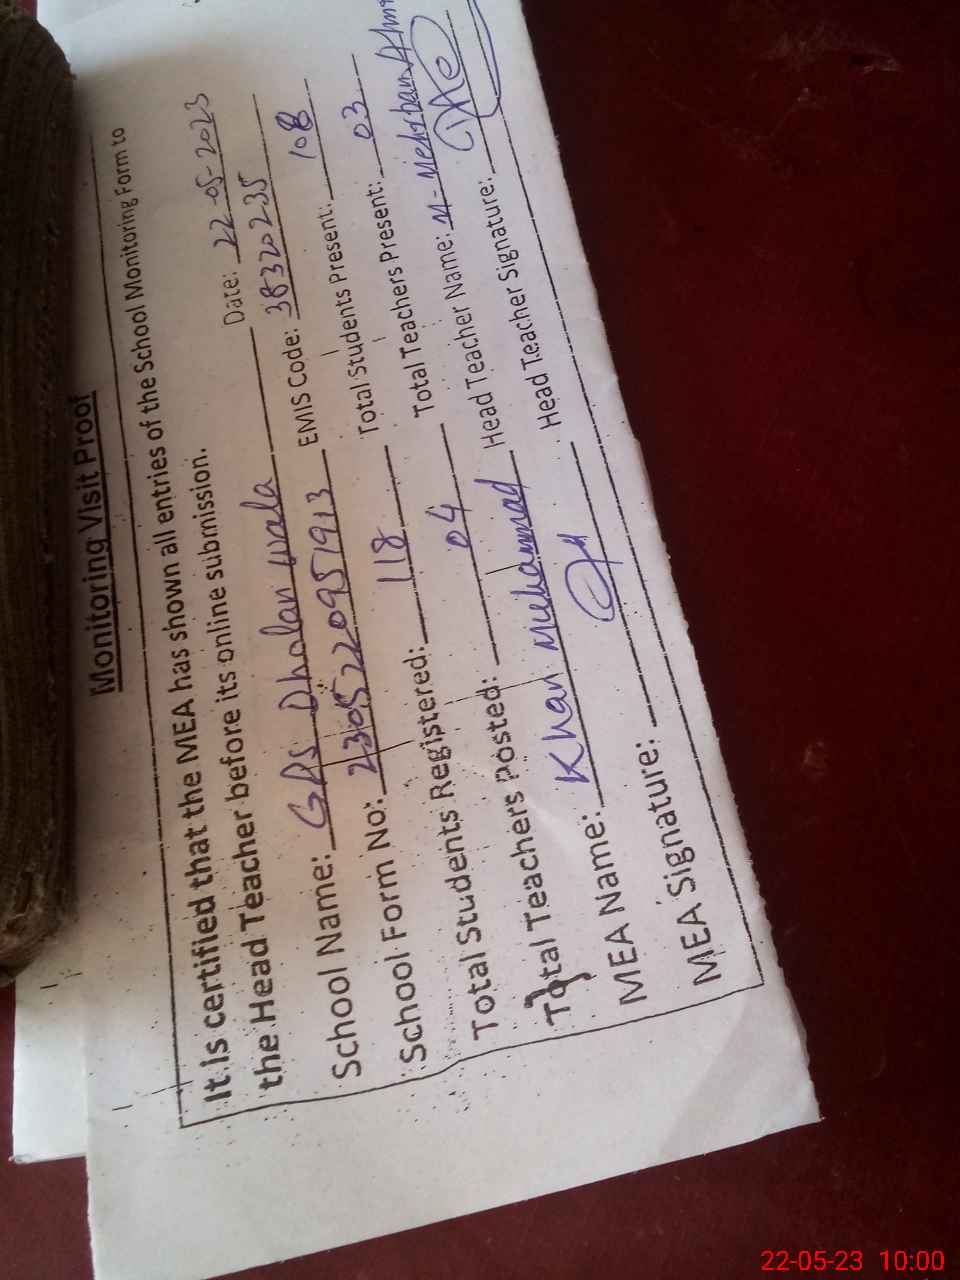 Monitoring Visit Proof
It is certified that the MEA has shown all entries of the School Monitoring Form to
the Head Teacher before its online submission.
Date: 22-05-2023
School Name: GPS Dholan wala EMIS Code: 38320235
School Form No: 2305220951913 Total Students Present: 108
Total Students Registered: 118 Total Teachers Present: 03
Total Teachers Posted: 04 Head Teacher Name: M-Mehrban
MEA Name: Khan Muhammad Head Teacher Signature:
MEA Signature:
22-05-23 10:00